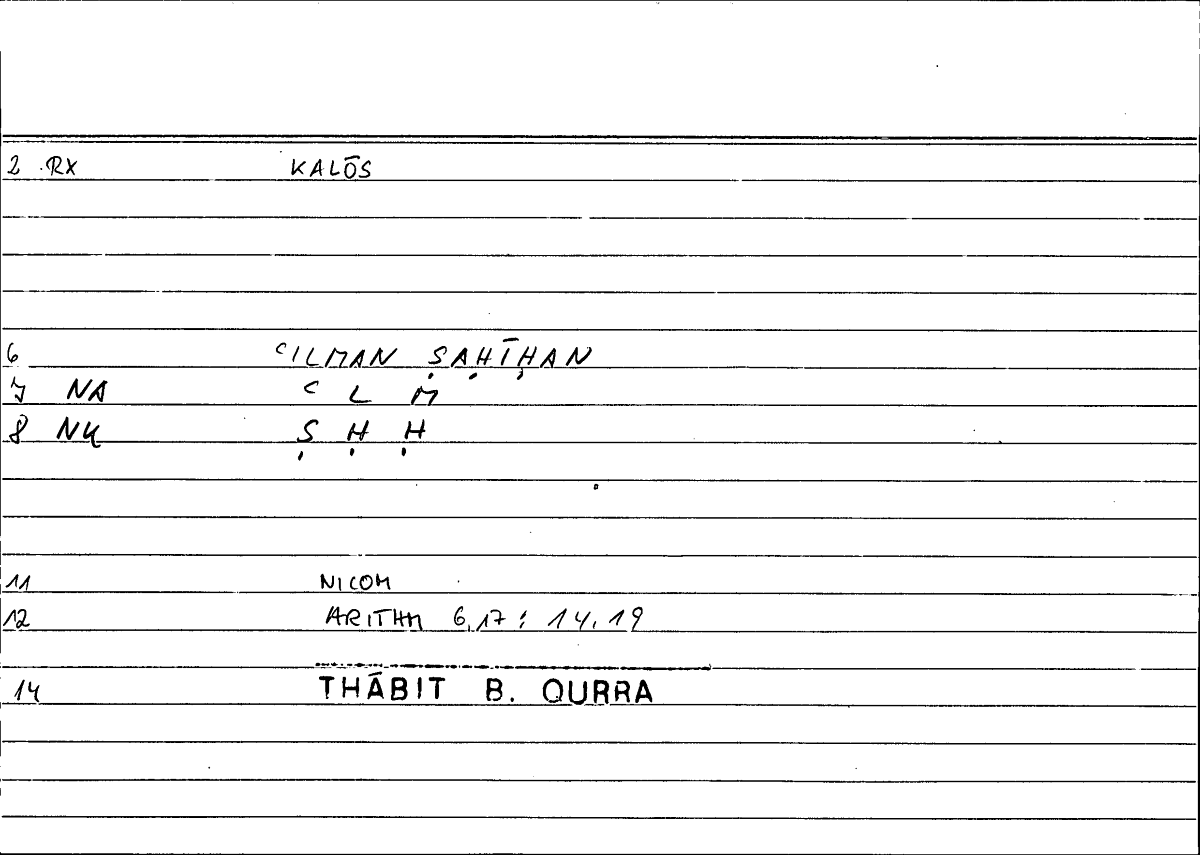 2 RX KALŌS
6 ʿILMAN ṢAḤĪḤAN
7 NA ʿ L M
8 NU Ṣ Ḥ Ḥ
11 NICOM
12 ARITHM 6,17 : 14,19
14 THĀBIT B. QURRA